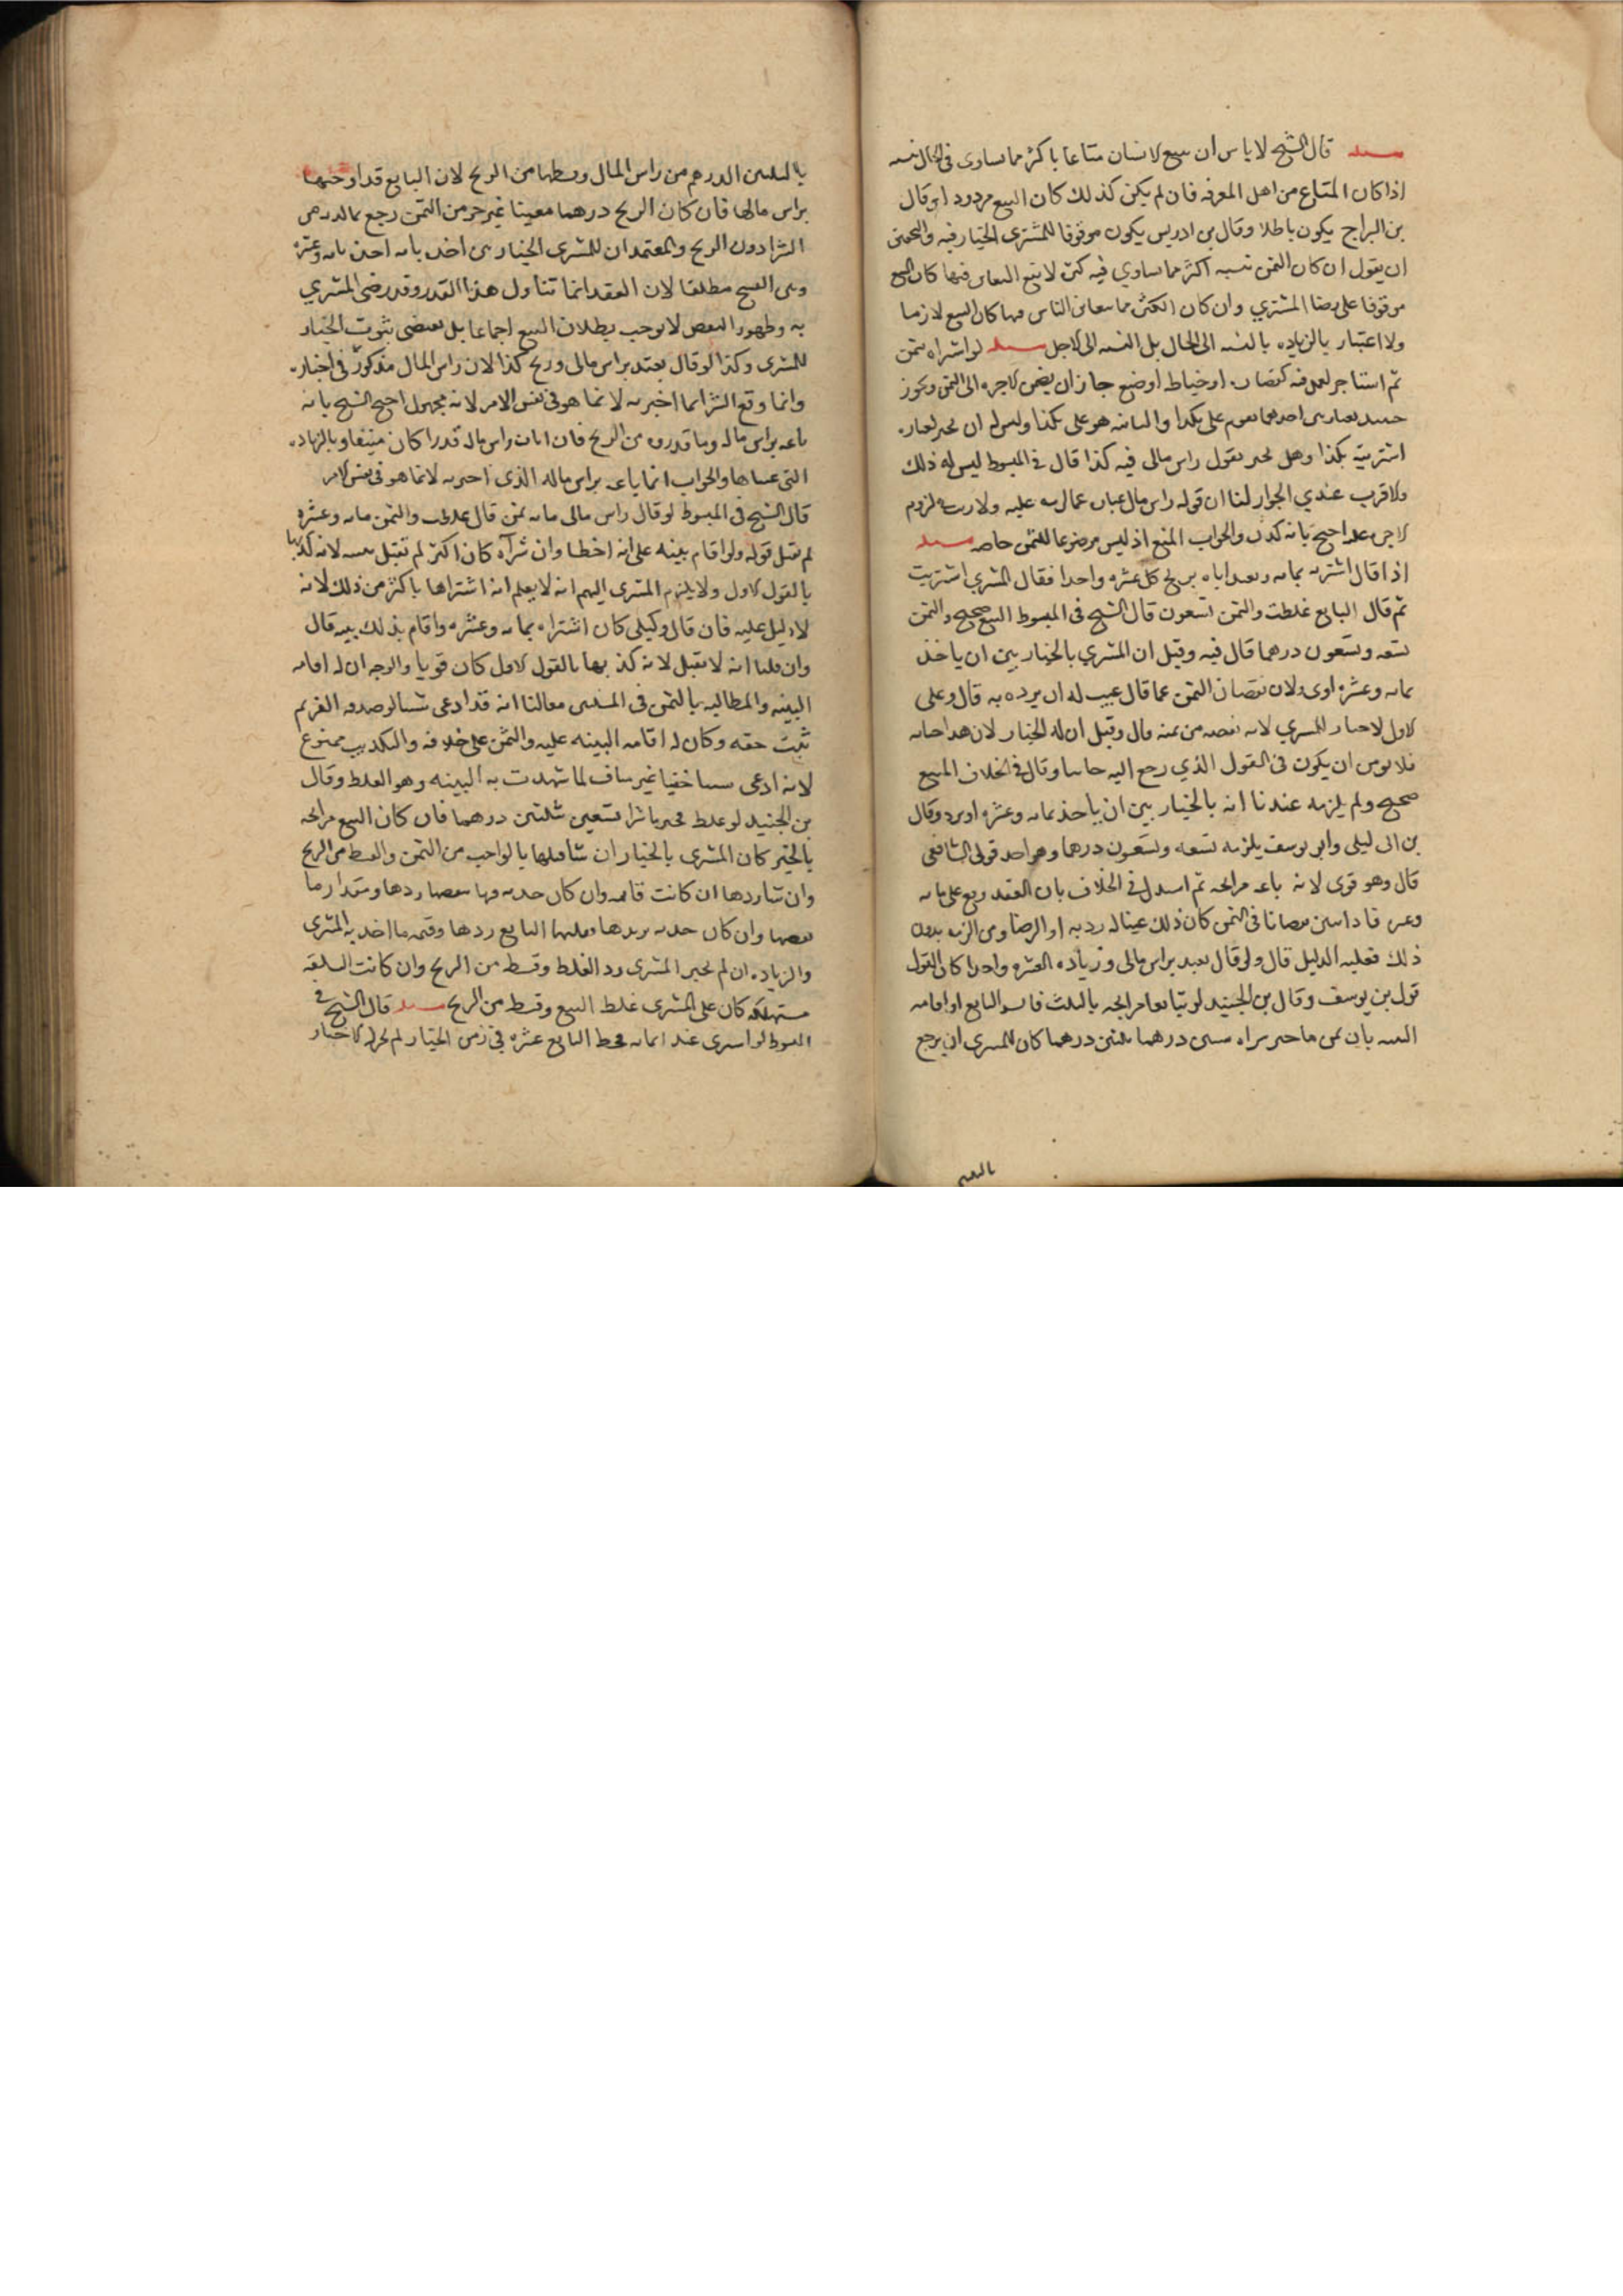 مسئله قال الشيخ لا باس ان يبيع لانسان متاعا باكثر مما يساوى فى الحال نسيه
اذا كان المتاع من اهل المعرفه فان لم يكن كذلك كان البيع مردودا وقال
بن البراج يكون باطلا وقال بن ادريس يكون موقوفا للمشترى الخيار فيه والتحقيق
ان يقول ان كان الثمن نسيه اكثر مما يساوي فيه كثره لا يقع التغابن فيها كان البيع
موقوفا على رضا المشتري وان كان الكثره مما يتغابن الناس فيها كان البيع لازما
ولا اعتبار بالزياده بالنسبه الى الحال بل النسبه الى الاجل مسئله لو اشتراه بثمن
ثم استاجر لعمل فيه كقصاره او خياطه او صبغ جاز ان يضم الاجره الى الثمن ويجوز
بعبارتين احدهما تقوم على بكذا والثانيه هو على بكذا وليس له ان يخبر بعباره
اشتريته بكذا وهل يخبر بقول راس مالى فيه كذا قال فى المبسوط ليس له ذلك
والاقرب عندي الجواز لنا ان قوله راس مال عباره عما لزمه عليه ولا ريب فى لزوم
الاجره عليه احتج بانه كذب والجواب المنع اذ ليس موضوعا للثمن خاصه مسئله
اذا قال اشتريته بمايه وبعه اياه بربح كل عشره واحدا فقال المشتري اشتريت
ثم قال البايع غلطت والثمن تسعون قال الشيخ فى المبسوط البيع صحيح والثمن
تسعه وتسعون درهما قال فيه وقيل ان المشتري بالخيار بين ان ياخذ
بمايه وعشره اوى ولان نقصان الثمن عما قال عيب له ان يرده به قال وعلى
الاول لا خيار للمشتري لانه نقصه من ثمنه قال وقيل ان له الخيار لان هذا خيانه
فلا يومن ان يكون فى القول الذي رجع اليه خاينا وقال فى الخلاف المبيع
صحيح ولم يلزمه عندنا انه بالخيار بين ان ياخذ بمايه وعشره او يرد وقال
بن ابى ليلى وابو يوسف يلزمه تسعه وتسعون درهما وهو احد قولى الشافعى
قال وهو قوى لانه باعه مرابحه ثم استدل فى الخلاف بان العقد وقع على مايه
وعشره فاذا تبين نقصانا فى الثمن كان ذلك عيبا له رد به او الرضا ومن الزمه بدون
ذلك فعليه الدليل قال ولو قال بعتك براس مالى وزياده العشره واحدا كان القول
قول بن يوسف وقال بن الجنيد لو تبايعا مرابحه بالثلث فاقر البايع او اقامه
البينه بان ثمن ما خبر شراه ستين درهما ثلثين درهما كان للمشترى ان يرجع
بالثلثين
بالثلثين الدرهم من راس المال وقسطها من الربح لان البايع قد اوجبها
براس مالها فان كان الربح درهما معينا غير جزء من الثمن رجع بالدرهم
الشرا دون الربح والمعتمد ان للمشترى الخيار بين اخذه بما به اخذه بمايه وعشره
وبين الفسخ مطلقا لان العقد انما تناول هذا القدر وقد رضى المشتري
به وظهور النقص لا يوجب بطلان البيع اجماعا بل يقتضى ثبوت الخيار
للمشترى وكذا لو قال بعتك براس مالى وربح كذا لان راس المال مذكور فى اخباره
وانما وقع الشرا بما اخبر به لا بما هو فى نفس الامر لانه مجهول احتج الشيخ بانه
باعه براس ماله وما قدره من الربح فاذا بان راس ماله قدرا كان مبيعا به وبالزياده
التى عيناها والجواب انما باعه براس ماله الذى اخبر به لا بما هو فى نفس الامر
قال الشيخ فى المبسوط لو قال راس مالى مايه ثمن قال غلطت والثمن مايه وعشره
لم يقبل قوله ولو اقام بينه على انه اخطا وان شراه كان اكثر لم تقبل بينته لانه كذبها
بالقول الاول ولا يلزم المشترى اليمين انه لا يعلم انه اشتراها باكثر من ذلك لانه
لا دليل عليه فان قال وكيلى كان اشتراه بمايه وعشره واقام بذلك بينه قال
وان قلنا انه لا يقبل لانه كذبها بالقول الاول كان قويا والوجه ان له اقامه
البينه والمطالبه بالثمن فى المسئلتين معا لنا انه قد ادعى شيئا لو صدقه الغريم
ثبت حقه وكان له اقامه البينه عليه والثمن على خلافه والتكذيب ممنوع
لانه ادعى سببا خفيا غير مناف لما شهدت به البينه وهو الغلط وقال
بن الجنيد لو غلط فخبر بالشرا تسعين ثلثين درهما فان كان البيع مرابحه
بالخبر كان المشترى بالخيار ان شا قبلها بالواجب من الثمن والقسط من الربح
وان شا ردها ان كانت قايمه وان كان حدث فيها نقصها ردها ومقدار ما
نقصها وان كان حدث يزيدها وقبلها البايع ردها وقيمه ما اخذ به المشترى
والزياده ان لم يخبر المشترى رد الغلط وقسط من الربح وان كانت السلعه
مستهلكه كان على المشترى غلط البيع وقسط من الربح مسئله قال الشيخ فى
المبسوط لو اشترى عبدا بمايه فحط البايع عشره فى زمن الخيار لم يجز له الاخبار